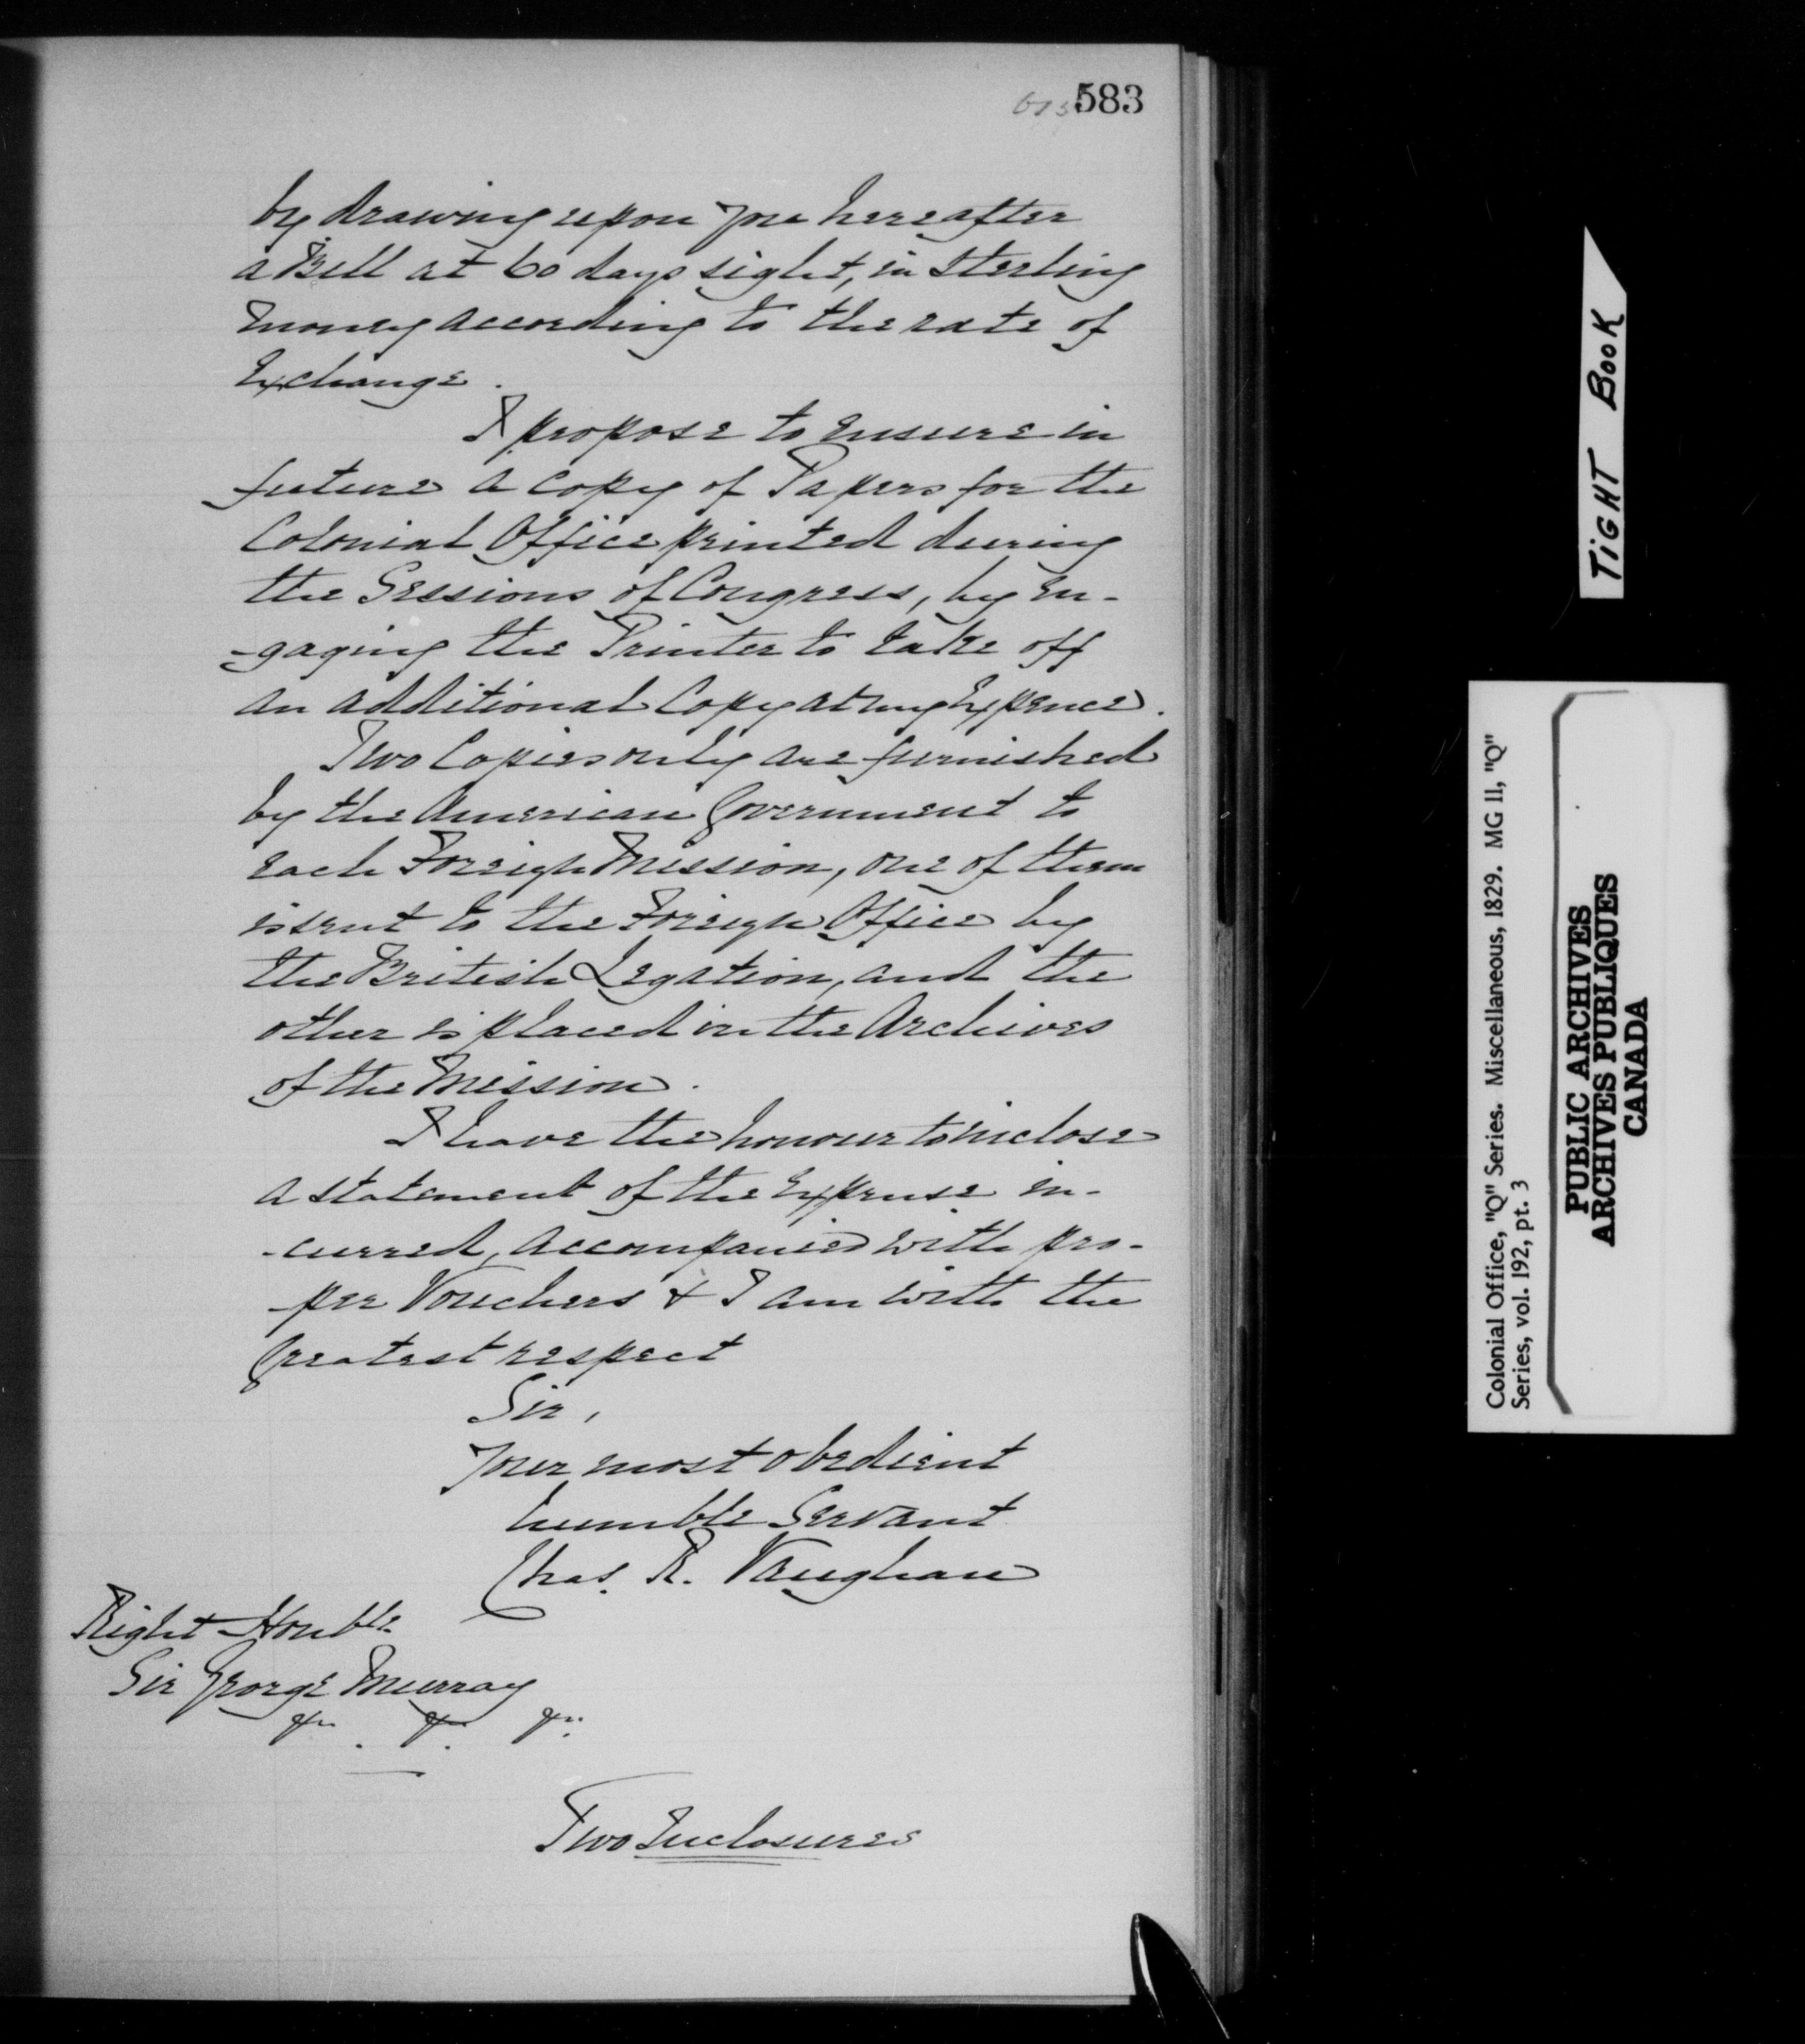 583
by drawing upon you hereafter
a Bill at 60 days sight, in Sterling
money according to the rate of
Exchange.
I propose to ensure in
future a copy of Papers for the
Colonial Office printed during
the Sessions of Congress, by en-
-gaging the Printer to take off
an additional Copy at my Expence.
Two Copies only are furnished
by the American Government to
each Foreign Mission, one of them
is sent to the Foreign Office by
the British Legation, and the
other is placed in the Archives
of the Mission.
I have the honour to inclose
a statement of the Expense in-
-curred, accompanied with pro-
-per Vouchers & I am with the
Greatest respect
Sir,
Your most obedient
humble Servant
Chas. R. Vaughan
Right Honble
Sir George Murray
&c. &c. &c.
Two Inclosures
TIGHT BOOK
Colonial Office, "Q" Series. Miscellaneous, 1829. MG 11, "Q"
Series, vol. 192, pt. 3
PUBLIC ARCHIVES
ARCHIVES PUBLIQUES
CANADA